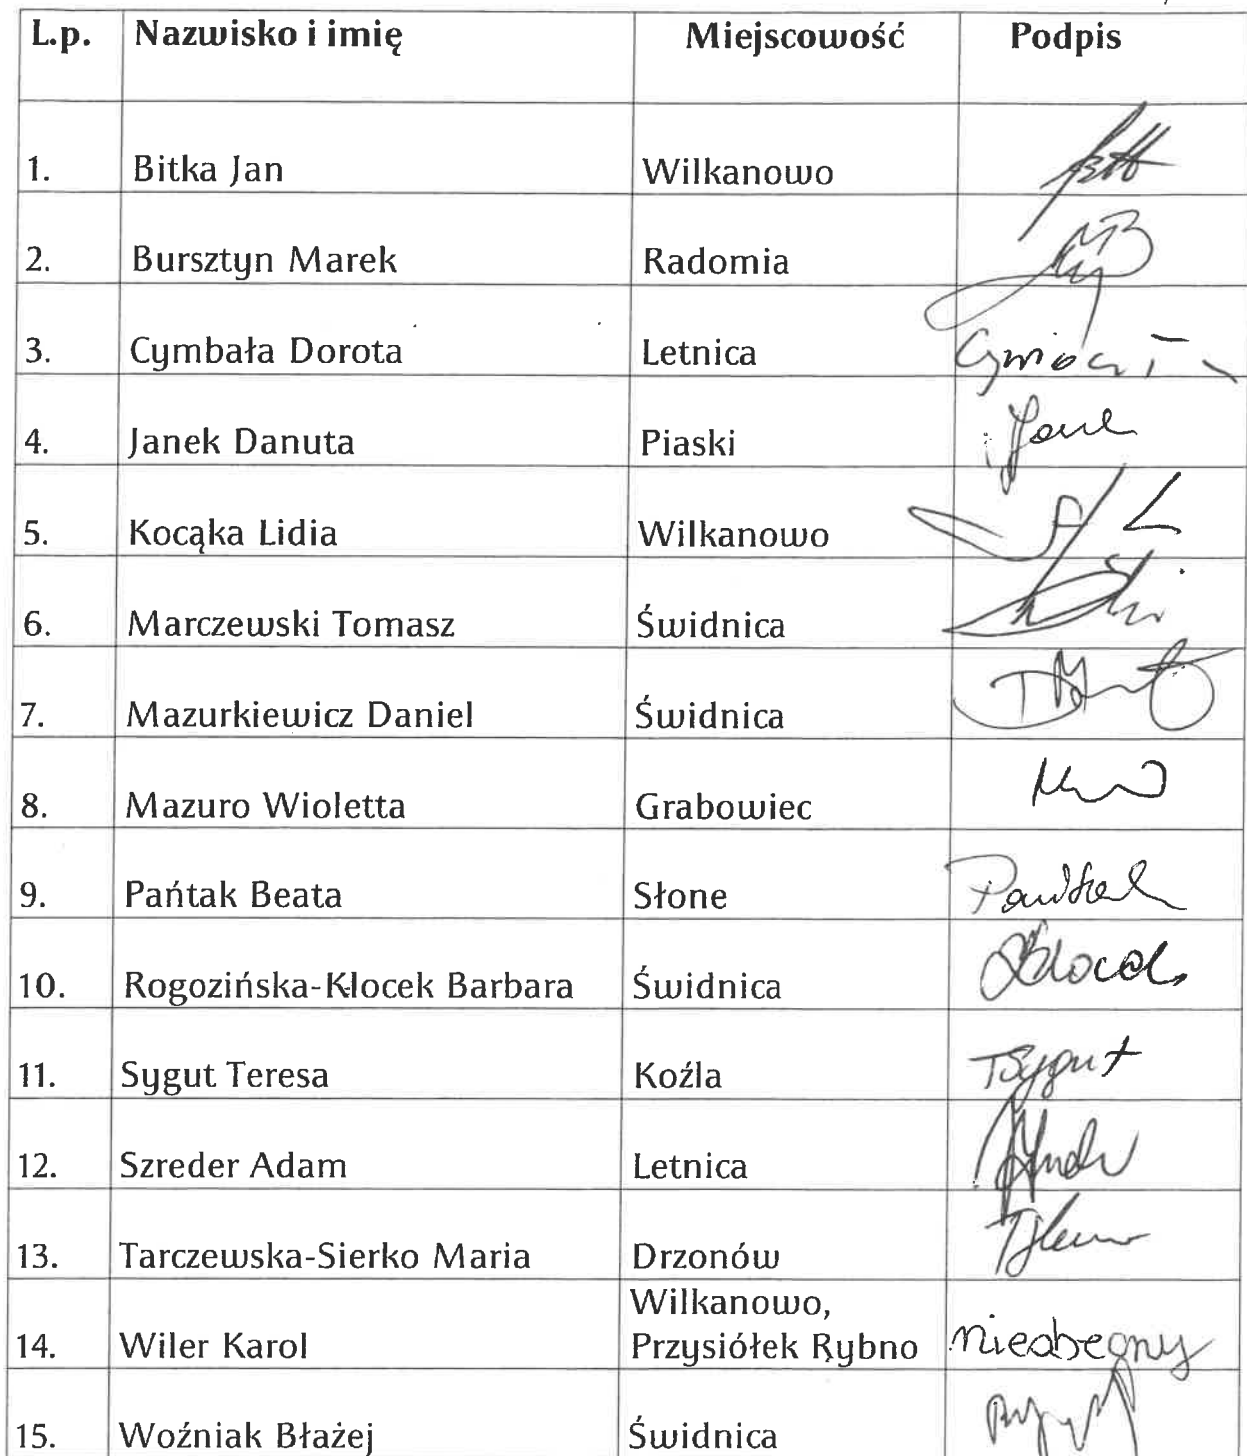 L.p. Nazwisko i imię Miejscowość Podpis
1. Bitka Jan Wilkanowo
2. Bursztyn Marek Radomia
3. Cymbała Dorota Letnica
4. Janek Danuta Piaski
5. Kocąka Lidia Wilkanowo
6. Marczewski Tomasz Świdnica
7. Mazurkiewicz Daniel Świdnica
8. Mazuro Wioletta Grabowiec
9. Pańtak Beata Słone
10. Rogozińska-Kłocek Barbara Świdnica
11. Sygut Teresa Koźla TSygut
12. Szreder Adam Letnica
13. Tarczewska-Sierko Maria Drzonów
Wilkanowo,
14. Wiler Karol Przysiółek Rybno nieobecny
15. Woźniak Błażej Świdnica